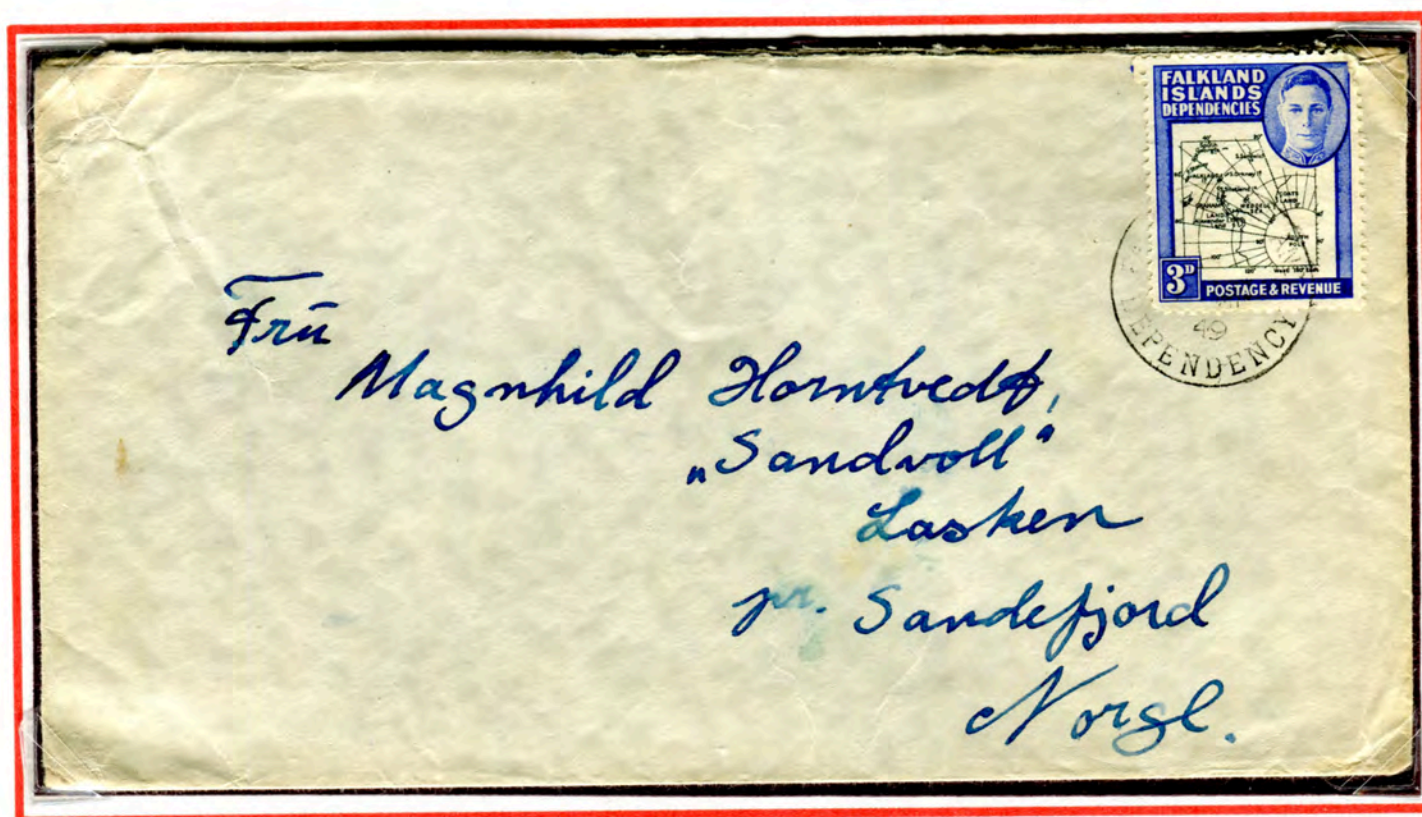 FALKLAND
ISLANDS
DEPENDENCIES
3D
POSTAGE & REVENUE
49
DEPENDENCY
Frū
Magnhild Horntvedt,
„Sandvoll"
Lasken
pr. Sandefjord
Norge.